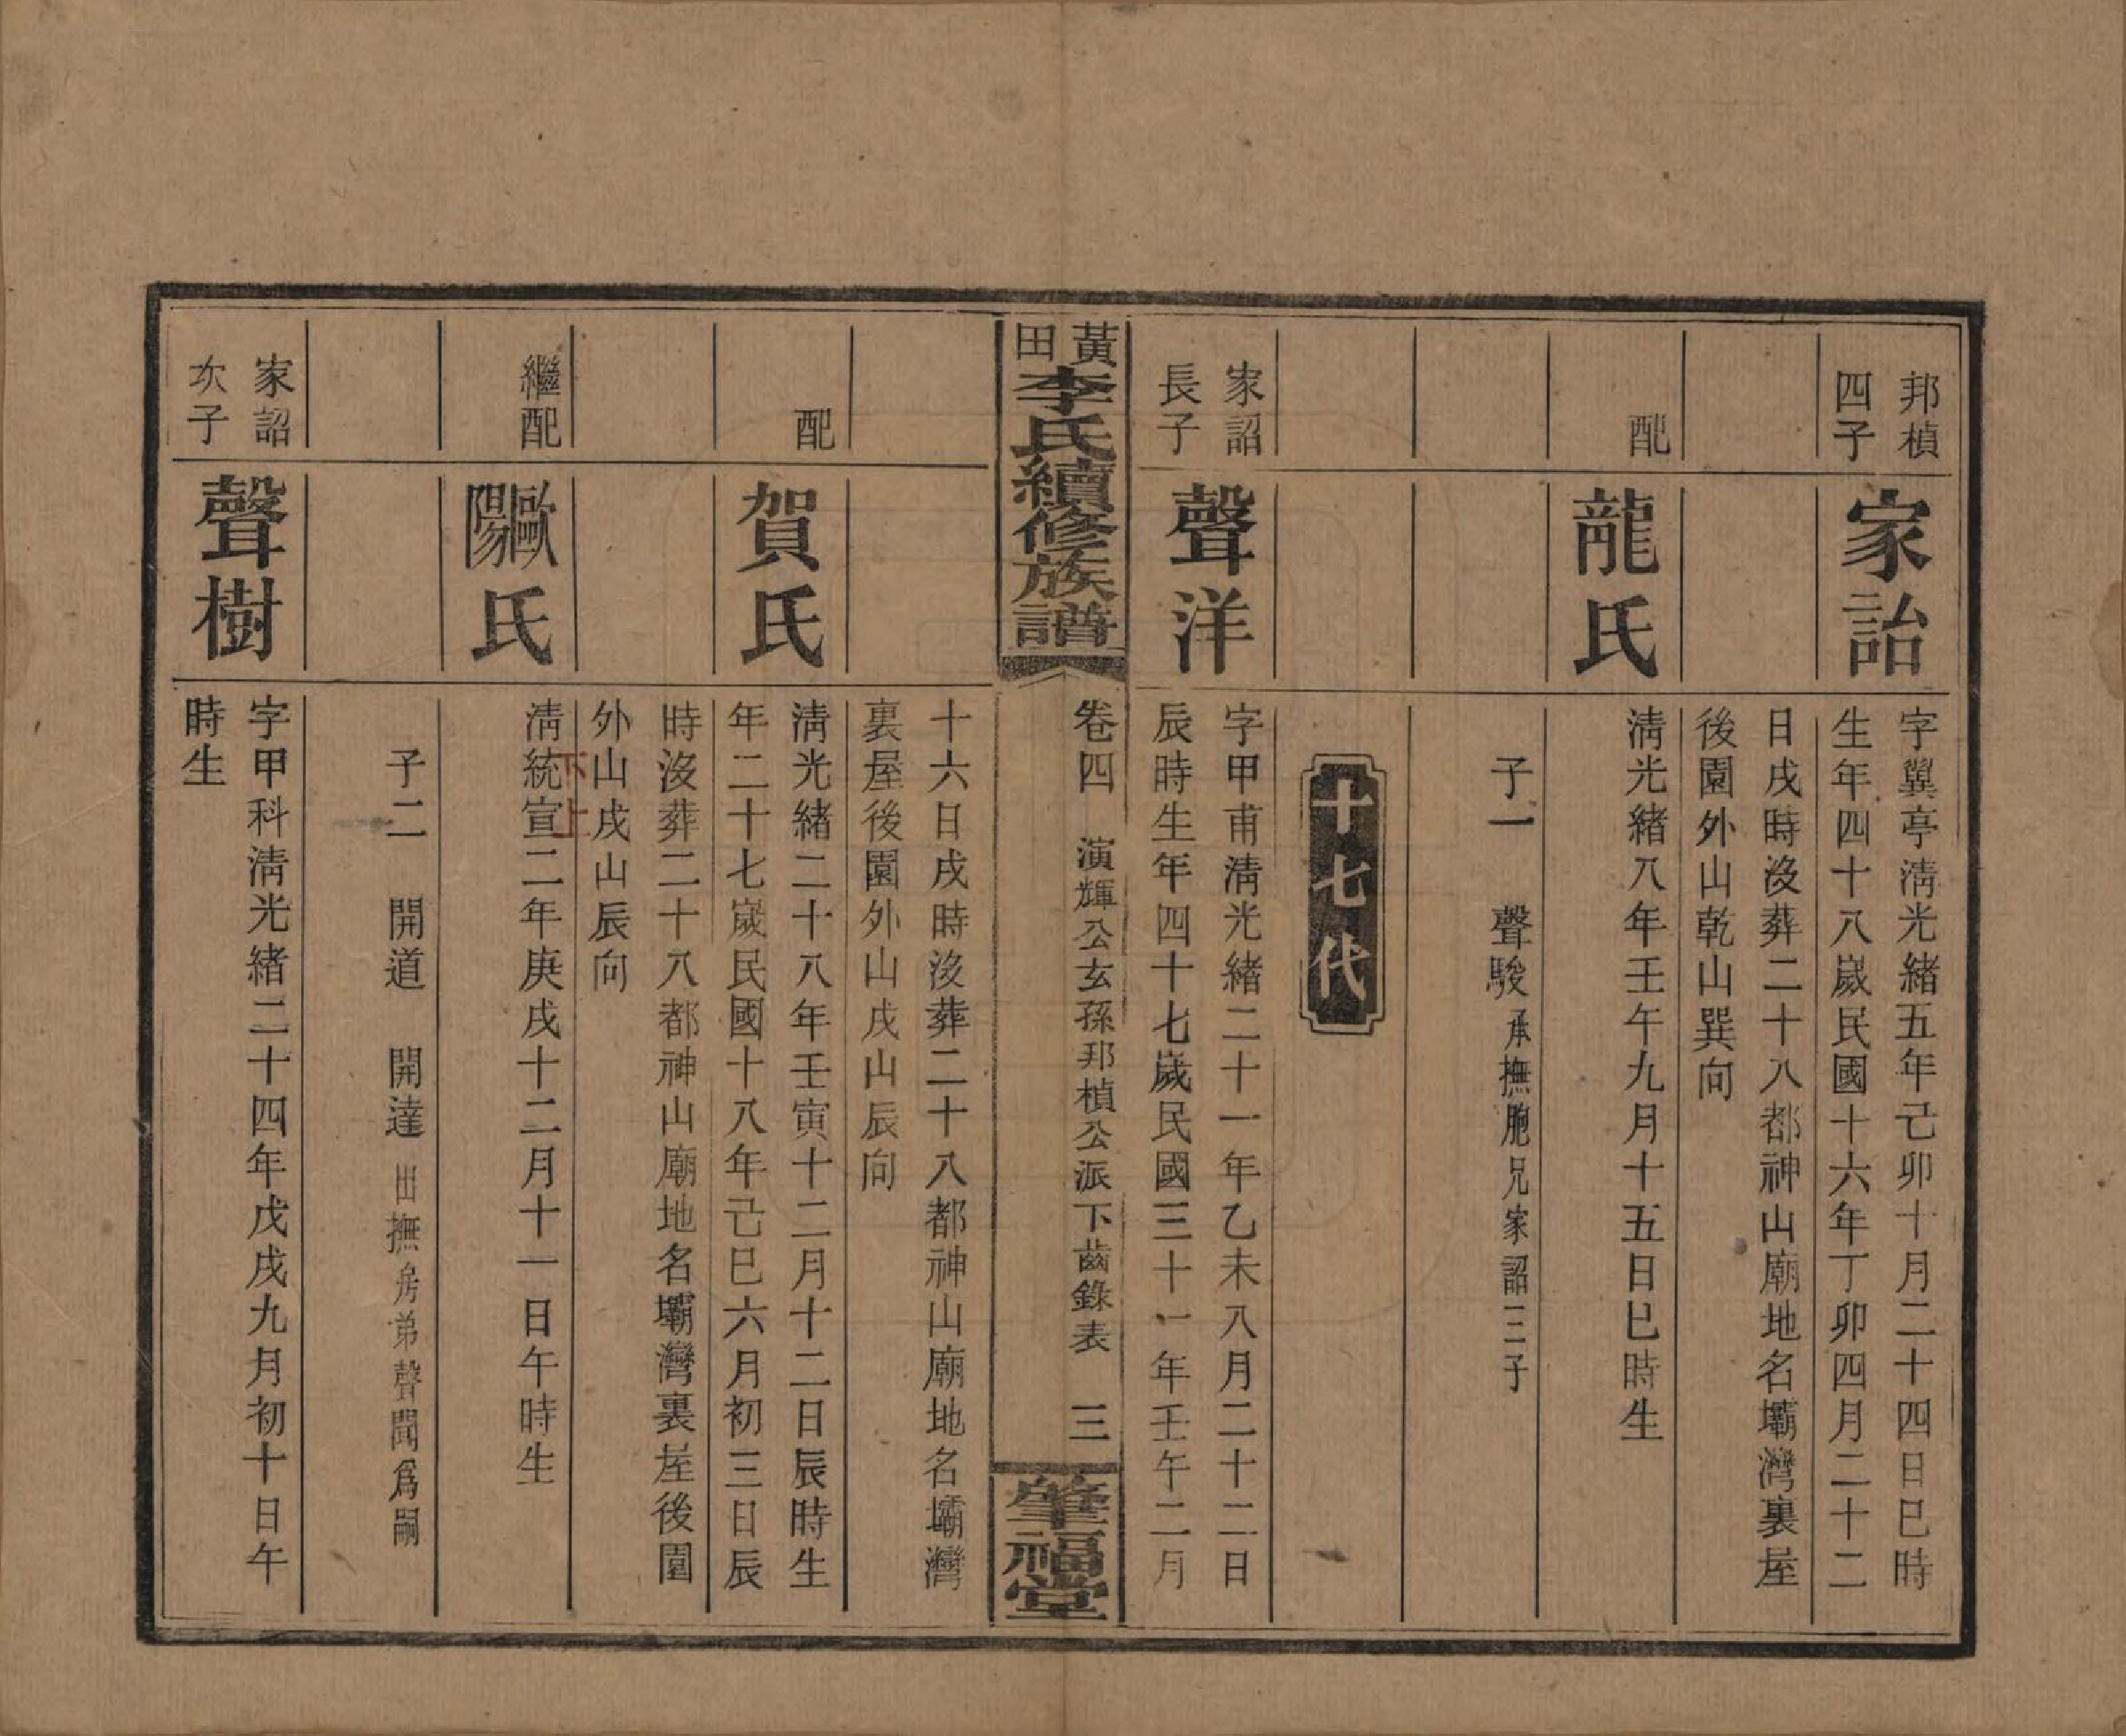 邦楨
四子
家詒
字翼亭淸光緒五年己卯十月二十四日巳時
生年四十八嵗民國十六年丁卯四月二十二
日戌時沒葬二十八都神山廟地名壩灣裏屋
後園外山乾山巽向
配
龍氏
淸光緒八年壬午九月十五日巳時生
子一 聲駿承撫胞兄家詔三子
十七代
家詔
長子
聲洋
字甲甫淸光緒二十一年乙未八月二十二日
辰時生年四十七嵗民國三十一年壬午二月
黃田李氏續修族譜
卷四 演輝公玄孫邦楨公派下齒錄表 三
肇福堂
十六日戌時沒葬二十八都神山廟地名壩灣
裏屋後園外山戌山辰向
配
賀氏
淸光緒二十八年壬寅十二月十二日辰時生
年二十七嵗民國十八年己巳六月初三日辰
時沒葬二十八都神山廟地名壩灣裏屋後園
外山戌山辰向
繼配
歐陽氏
淸統宣二年庚戌十二月十一日午時生
下上
子二 開道 開達出撫房弟聲聞爲嗣
家詔
次子
聲樹
字甲科淸光緒二十四年戊戌九月初十日午
時生